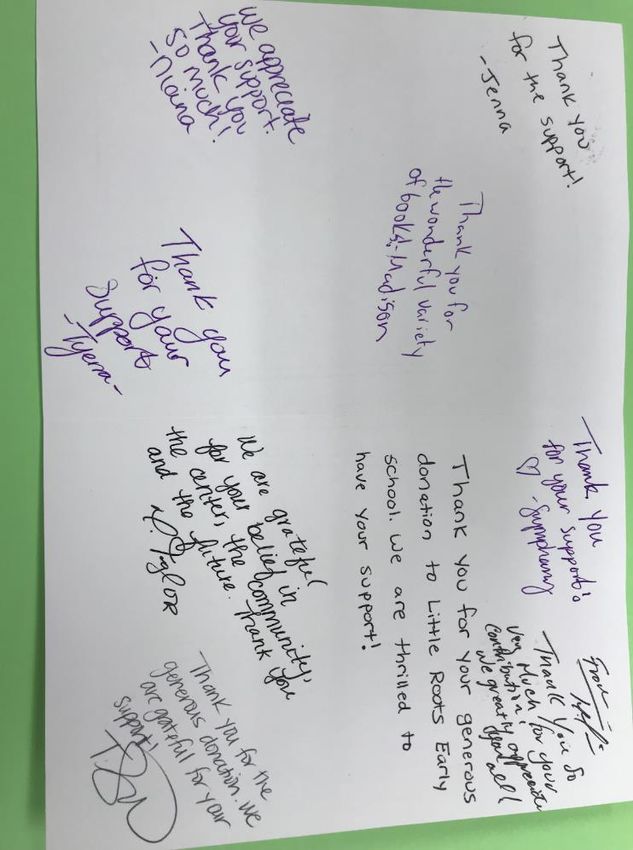 Thank you
for the support!
-Jenna
We appreciate
your support.
Thank you
so much!
-Diana
Thank you for
the wonderful variety
of books! -Madison
Thank you
for your
support
-Tyerra-
Thank you
for your support's
♡ -Symphany
Thank you for your generous
donation to Little Roots Early
school. We are thrilled to
have your support!
We are grateful
for your belief in
the center, the community,
and the future. Thank you
Taylor
From
Thank you so
very Much for your
contribution!
we greatly appreciate
Thank you for the
generous donation. We
are grateful for your
support!